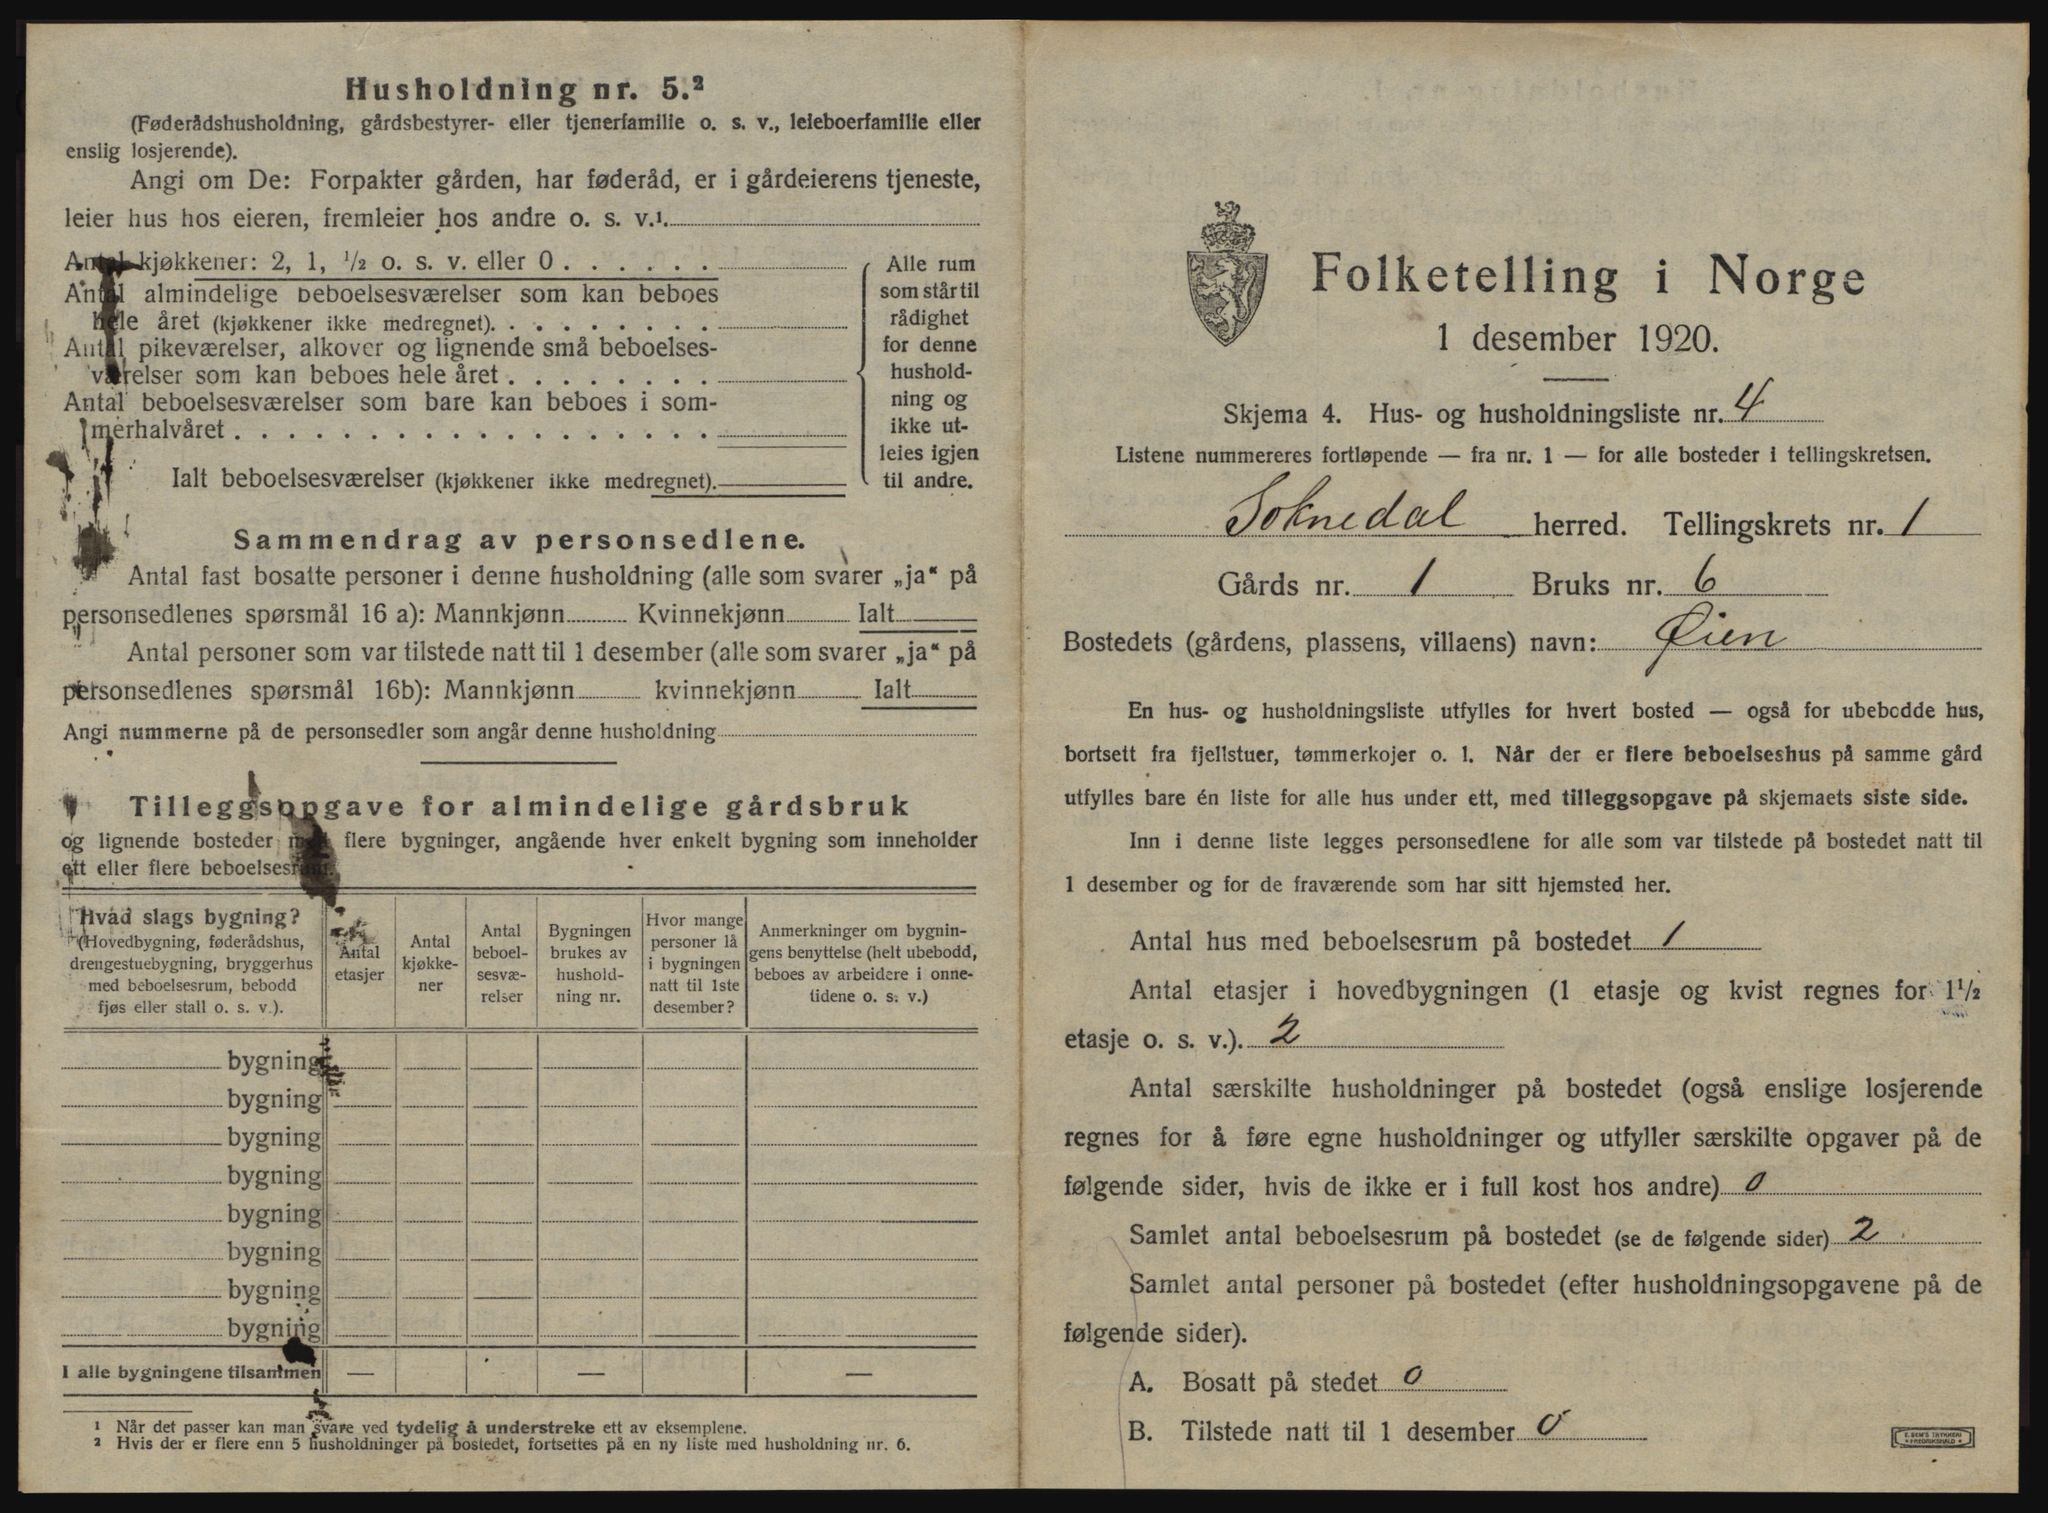 Husholdning nr. 5.²
(Føderådshusholdning, gårdsbestyrer- eller tjenerfamilie o. s. v., leieboerfamilie eller
enslig losjerende).
Angi om De: Forpakter gården, har føderåd, er i gårdeierens tjeneste,
leier hus hos eieren, fremleier hos andre o. s. v.¹.
Antal kjøkkener: 2, 1, ½ o. s. v. eller 0 . . . . . .
Antal almindelige beboelsesværelser som kan beboes
hele året (kjøkkener ikke medregnet). . . . . . . . .
Antal pikeværelser, alkover og lignende små beboelses-
værelser som kan beboes hele året . . . . . . . .
Antal beboelsesværelser som bare kan beboes i som-
merhalvåret . . . . . . . . . . . . . . . . . .
Ialt beboelsesværelser (kjøkkener ikke medregnet).
Alle rum
som står til
rådighet
for denne
hushold-
ning og
ikke ut-
leies igjen
til andre.
Sammendrag av personsedlene.
Antal fast bosatte personer i denne husholdning (alle som svarer „ja“ på
personsedlenes spørsmål 16 a): Mannkjønn Kvinnekjønn Ialt
Antal personer som var tilstede natt til 1 desember (alle som svarer „ja“ på
personsedlenes spørsmål 16b): Mannkjønn kvinnekjønn Ialt
Angi nummerne på de personsedler som angår denne husholdning
Tilleggsopgave for almindelige gårdsbruk
og lignende bosteder med flere bygninger, angående hver enkelt bygning som inneholder
ett eller flere beboelsesrum.
Hvad slags bygning?
(Hovedbygning, føderådshus,
drengestuebygning, bryggerhus
med beboelsesrum, bebodd
fjøs eller stall o. s. v.).
Antal
etasjer
Antal
kjøkke-
ner
Antal
beboel-
sesvæ-
relser
Bygningen
brukes av
hushold-
ning nr.
Hvor mange
personer lå
i bygningen
natt til 1ste
desember?
Anmerkninger om bygnin-
gens benyttelse (helt ubebodd,
beboes av arbeidere i onne-
tidene o. s. v.)
bygning
bygning
bygning
bygning
bygning
bygning
bygning
bygning
I alle bygningene tilsammen — — —
¹ Når det passer kan man svare ved tydelig å understreke ett av eksemplene.
² Hvis der er flere enn 5 husholdninger på bostedet, fortsettes på en ny liste med husholdning nr. 6.
Folketelling i Norge
1 desember 1920.
Skjema 4. Hus- og husholdningsliste nr. 4
Listene nummereres fortløpende — fra nr. 1 — for alle bosteder i tellingskretsen.
Soknedal herred. Tellingskrets nr. 1
Gårds nr. 1 Bruks nr. 6
Bostedets (gårdens, plassens, villaens) navn: Øien
En hus- og husholdningsliste utfylles for hvert bosted — også for ubebodde hus,
bortsett fra fjellstuer, tømmerkojer o. l. Når der er flere beboelseshus på samme gård
utfylles bare én liste for alle hus under ett, med tilleggsopgave på skjemaets siste side.
Inn i denne liste legges personsedlene for alle som var tilstede på bostedet natt til
1 desember og for de fraværende som har sitt hjemsted her.
Antal hus med beboelsesrum på bostedet 1
Antal etasjer i hovedbygningen (1 etasje og kvist regnes for 1½
etasje o. s. v.). 2
Antal særskilte husholdninger på bostedet (også enslige losjerende
regnes for å føre egne husholdninger og utfyller særskilte opgaver på de
følgende sider, hvis de ikke er i full kost hos andre) 0
Samlet antal beboelsesrum på bostedet (se de følgende sider) 2
Samlet antal personer på bostedet (efter husholdningsopgavene på de
følgende sider).
A. Bosatt på stedet 0
B. Tilstede natt til 1 desember 0
E. SEM'S TRYKKERI
FREDRIKSHALD